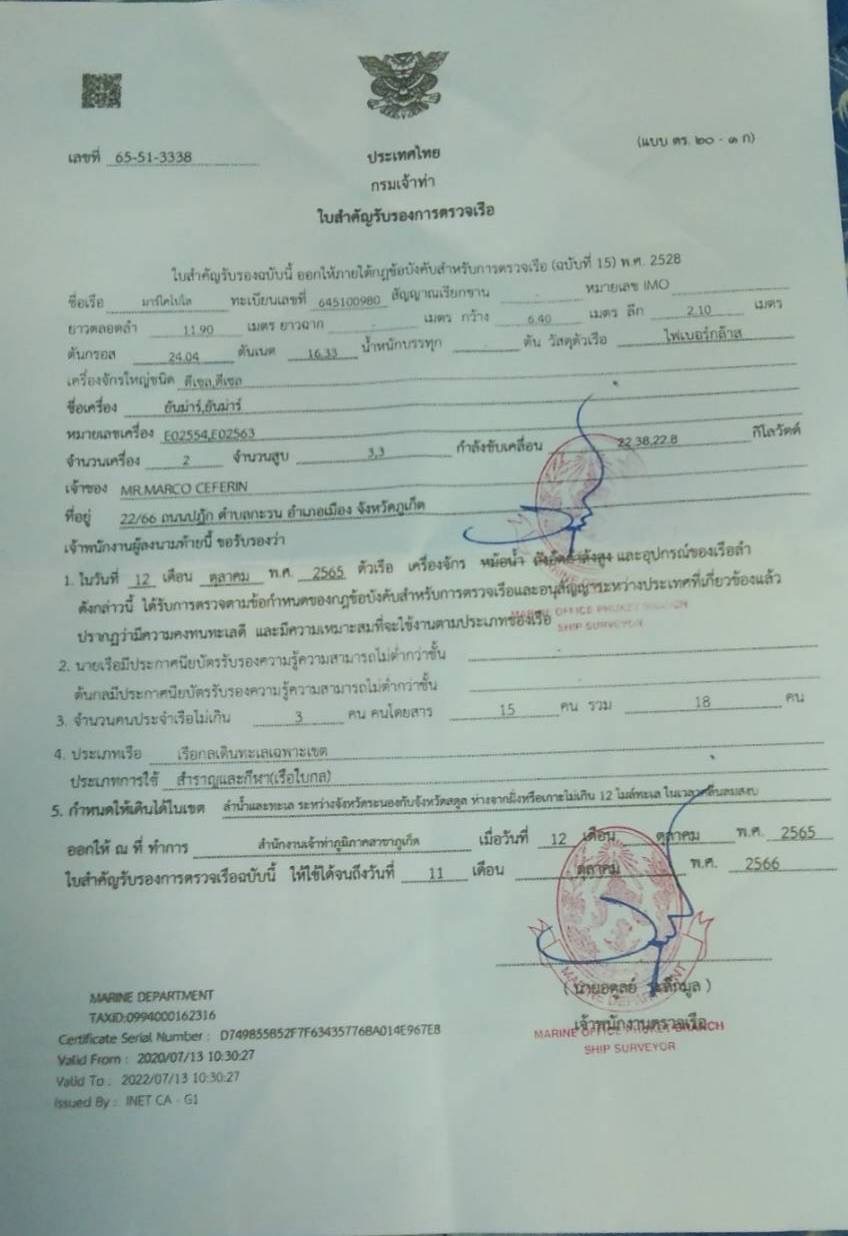 เลขที่ 65-51-3338
(แบบ ตร. ๒๐ - ๑ ก)
ประเทศไทย
กรมเจ้าท่า
ใบสำคัญรับรองการตรวจเรือ
ใบสำคัญรับรองฉบับนี้ ออกให้ภายใต้กฎข้อบังคับสำหรับการตรวจเรือ (ฉบับที่ 15) พ.ศ. 2528
ชื่อเรือ มาร์โคโปโล ทะเบียนเลขที่ 645100980 สัญญาณเรียกขาน - หมายเลข IMO
ยาวตลอดลำ 11.90 เมตร ยาวฉาก - เมตร กว้าง 6.40 เมตร ลึก 2.10 เมตร
ตันกรอส 24.04 ตันเนต 16.33 น้ำหนักบรรทุก ตัน วัสดุตัวเรือ ไฟเบอร์กล๊าส
เครื่องจักรใหญ่ชนิด ดีเซล,ดีเซล
ชื่อเครื่อง ยันม่าร์,ยันม่าร์
หมายเลขเครื่อง E02554,E02563
จำนวนเครื่อง 2 จำนวนสูบ 3,3 กำลังขับเคลื่อน 22.38,22.8 กิโลวัตต์
เจ้าของ MR.MARCO CEFERIN
ที่อยู่ 22/66 ถนนปฏัก ตำบลกะรน อำเภอเมือง จังหวัดภูเก็ต
เจ้าพนักงานผู้ลงนามท้ายนี้ ขอรับรองว่า
1. ในวันที่ 12 เดือน ตุลาคม พ.ศ. 2565 ตัวเรือ เครื่องจักร หม้อน้ำ และอุปกรณ์ของเรือลำ
ดังกล่าวนี้ ได้รับการตรวจตามข้อกำหนดของกฎข้อบังคับสำหรับการตรวจเรือและอนุสัญญาระหว่างประเทศที่เกี่ยวข้องแล้ว
ปรากฏว่ามีความคงทนทะเลดี และมีความเหมาะสมที่จะใช้งานตามประเภทของเรือ
SHIP SURVEYOR
2. นายเรือมีประกาศนียบัตรรับรองความรู้ความสามารถไม่ต่ำกว่าชั้น
ต้นกลมีประกาศนียบัตรรับรองความรู้ความสามารถไม่ต่ำกว่าชั้น
3. จำนวนคนประจำเรือไม่เกิน 3 คน คนโดยสาร 15 คน รวม 18 คน
4. ประเภทเรือ เรือกลเดินทะเลเฉพาะเขต
ประเภทการใช้ สำราญและกีฬา(เรือใบกล)
5. กำหนดให้เดินได้ในเขต ลำน้ำและทะเล ระหว่างจังหวัดระนองกับจังหวัดสตูล ห่างจากฝั่งหรือเกาะไม่เกิน 12 ไมล์ทะเล ในเวลาคลื่นลมสงบ
ออกให้ ณ ที่ ทำการ สำนักงานเจ้าท่าภูมิภาคสาขาภูเก็ต เมื่อวันที่ 12 เดือน ตุลาคม พ.ศ. 2565
ใบสำคัญรับรองการตรวจเรือฉบับนี้ ให้ใช้ได้จนถึงวันที่ 11 เดือน ตุลาคม พ.ศ. 2566
MARINE DEPARTMENT
เจ้าพนักงานตรวจเรือ
MARINE OFFICE PHUKET BRANCH
SHIP SURVEYOR
MARINE DEPARTMENT
TAXID:0994000162316
Certificate Serial Number : D749855B52F7F63435776BA014E967E8
Valid From : 2020/07/13 10:30:27
Valid To : 2022/07/13 10:30:27
Issued By : INET CA - G1